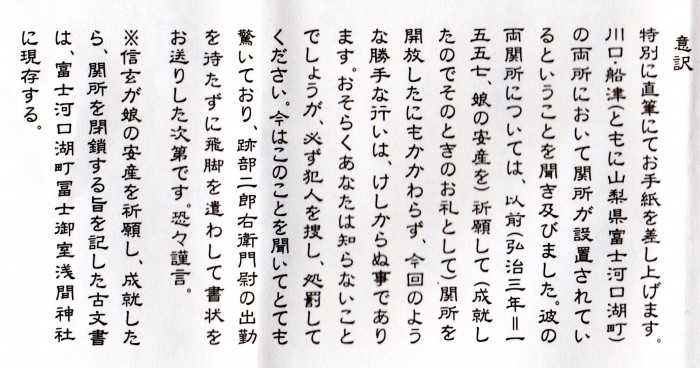 意訳
特別に直筆にてお手紙を差し上げます。
川口・船津(ともに山梨県富士河口湖町)
の両所において関所が設置されてい
るということを聞き及びました。彼の
両関所については、以前(弘治三年＝一
五五七、娘の安産を)祈願して(成就し
たのでそのときのお礼として)関所を
開放したにもかかわらず、今回のよう
な勝手な行いは、けしからぬ事であり
ます。おそらくあなたは知らないこと
でしょうが、必ず犯人を捜し、処罰して
ください。今はこのことを聞いてとても
驚いており、跡部二郎右衛門尉の出勤
を待たずに飛脚を遣わして書状を
お送りした次第です。恐々謹言。
※信玄が娘の安産を祈願し、成就した
ら、関所を閉鎖する旨を記した古文書
は、富士河口湖町冨士御室浅間神社
に現存する。